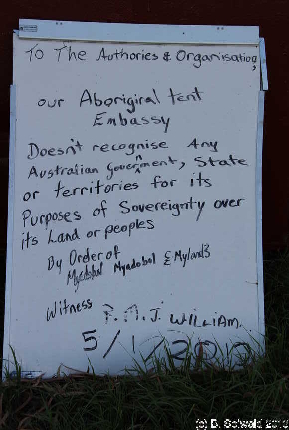 To The Authories & Organisation,
our Aborigiral tent
Embassy
Doesn't recognise Any
Australian Government, State
or territories for its
Purposes of Sovereignty over
its Land or peoples
By Order of
Myadobol & Myland3
Witness P. A. J. WILLIAM.
5/1/2010
(c) D. 2010